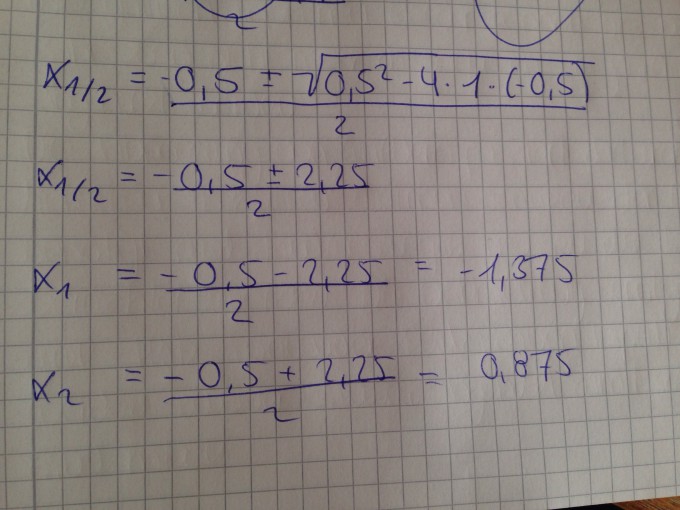 2
x1/2 = -0,5 ± √0,5² - 4 · 1 · (-0,5)
2
x1/2 = -0,5 ± 2,25
2
x1 = -0,5 - 2,25 = -1,375
2
x2 = -0,5 + 2,25 = 0,875
2